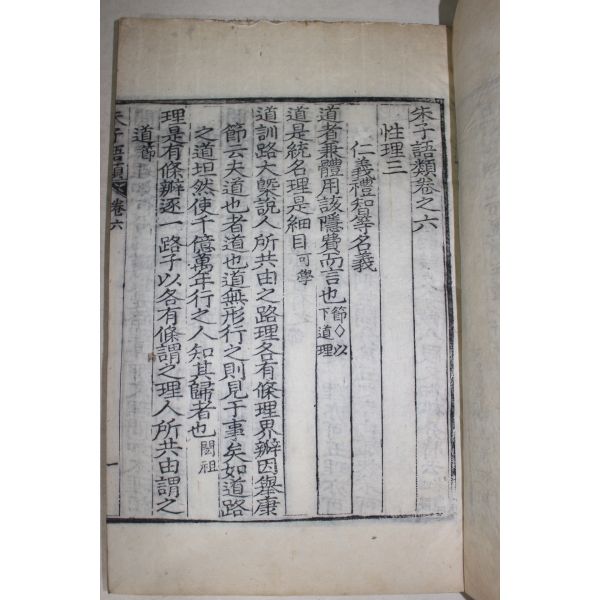 朱子語類卷之六
性理三
仁義禮知等名義
道者兼體用該隱費而言也節◇以下道理
道是統名理是細目可學
道訓路大槩說人所共由之路理各有條理界瓣因舉康
節云夫道也者道也道無形行之則見于事矣如道路
之道坦然使千億萬年行之人知其歸者也閎祖
理是有條瓣逐一路子以各有條謂之理人所共由謂之
道節
朱子語類 卷六 一